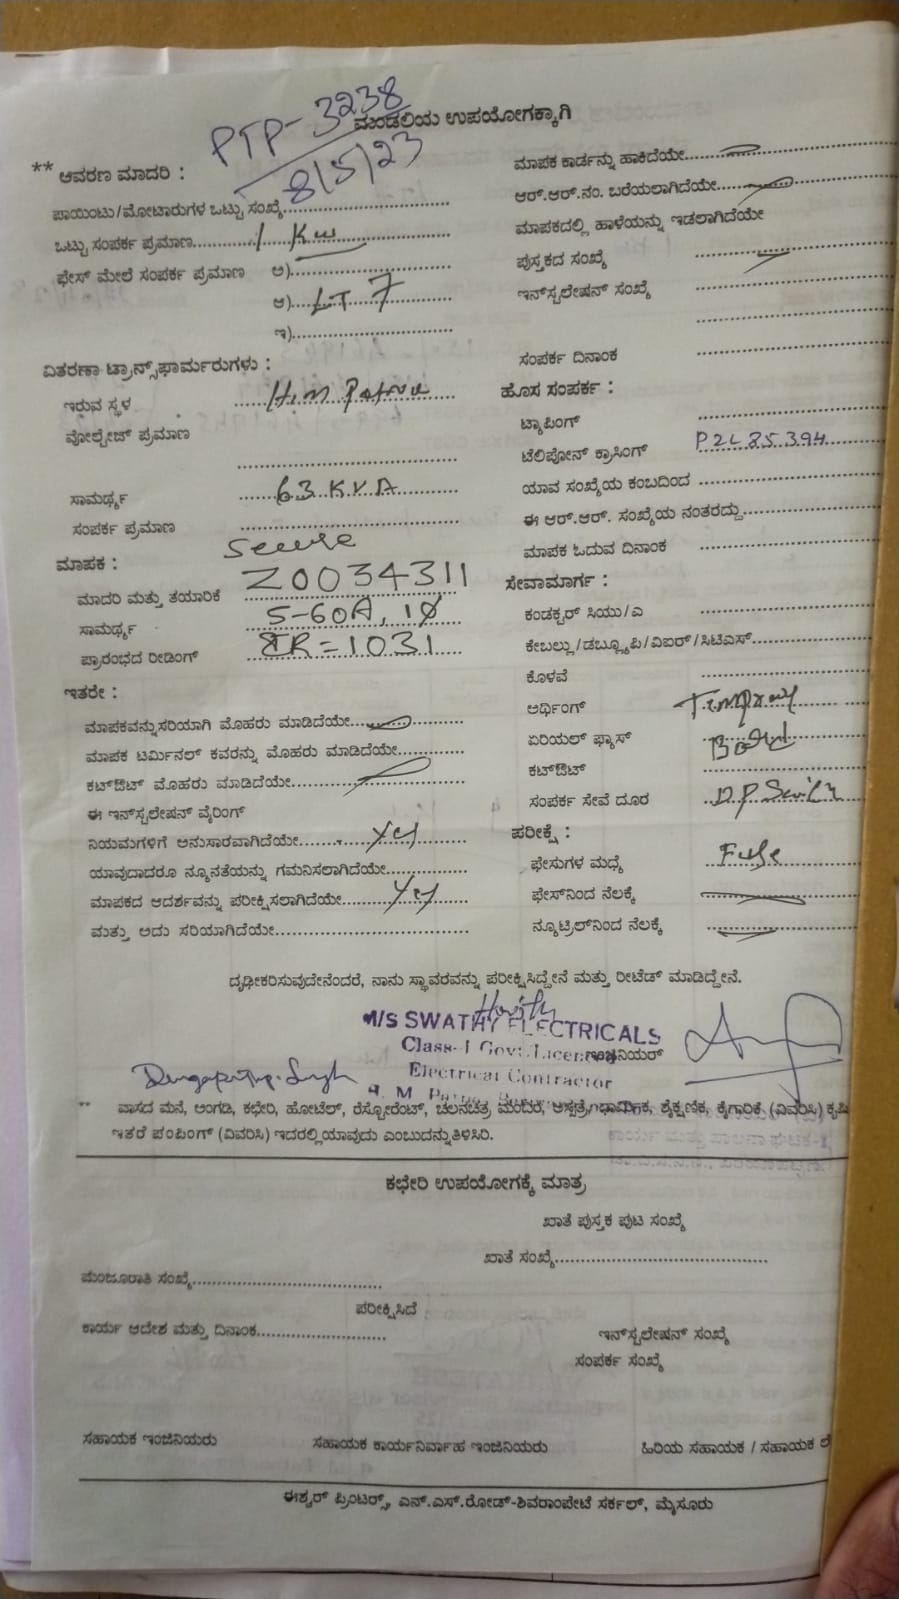 PTP-3238
8/5/23
ಮಂಡಲಿಯ ಉಪಯೋಗಕ್ಕಾಗಿ
** ಆವರಣ ಮಾದರಿ :
ಪಾಯಿಂಟು/ಮೋಟಾರುಗಳ ಒಟ್ಟು ಸಂಖ್ಯೆ
ಒಟ್ಟು ಸಂಪರ್ಕ ಪ್ರಮಾಣ 1 Kw
ಫೇಸ್ ಮೇಲೆ ಸಂಪರ್ಕ ಪ್ರಮಾಣ ಅ)
ಆ) LT 7
ಇ)
ವಿತರಣಾ ಟ್ರಾನ್ಸ್‌ಫಾರ್ಮರುಗಳು :
ಇರುವ ಸ್ಥಳ
ವೋಲ್ಟೇಜ್ ಪ್ರಮಾಣ
ಸಾಮರ್ಥ್ಯ 63 K.V.A
ಸಂಪರ್ಕ ಪ್ರಮಾಣ
ಮಾಪಕ : Secure
ಮಾದರಿ ಮತ್ತು ತಯಾರಿಕೆ Z0034311
ಸಾಮರ್ಥ್ಯ 5-60A, 1Ø
ಪ್ರಾರಂಭದ ರೀಡಿಂಗ್ IR=1031
ಇತರೇ :
ಮಾಪಕವನ್ನುಸರಿಯಾಗಿ ಮೊಹರು ಮಾಡಿದೆಯೇ
ಮಾಪಕ ಟರ್ಮಿನಲ್ ಕವರನ್ನು ಮೊಹರು ಮಾಡಿದೆಯೇ
ಕಟ್‌ಔಟ್ ಮೊಹರು ಮಾಡಿದೆಯೇ
ಈ ಇನ್‌ಸ್ಟಲೇಷನ್ ವೈರಿಂಗ್
ನಿಯಮಗಳಿಗೆ ಅನುಸಾರವಾಗಿದೆಯೇ Yes
ಯಾವುದಾದರೂ ನ್ಯೂನತೆಯನ್ನು ಗಮನಿಸಲಾಗಿದೆಯೇ
ಮಾಪಕದ ಆದರ್ಶವನ್ನು ಪರೀಕ್ಷಿಸಲಾಗಿದೆಯೇ Yes
ಮತ್ತು ಅದು ಸರಿಯಾಗಿದೆಯೇ
ಮಾಪಕ ಕಾರ್ಡನ್ನು ಹಾಕಿದೆಯೇ
ಆರ್.ಆರ್.ನಂ. ಬರೆಯಲಾಗಿದೆಯೇ
ಮಾಪಕದಲ್ಲಿ ಹಾಳೆಯನ್ನು ಇಡಲಾಗಿದೆಯೇ
ಪುಸ್ತಕದ ಸಂಖ್ಯೆ
ಇನ್‌ಸ್ಟಲೇಷನ್ ಸಂಖ್ಯೆ
ಸಂಪರ್ಕ ದಿನಾಂಕ
ಹೊಸ ಸಂಪರ್ಕ :
ಟ್ಯಾಪಿಂಗ್
ಟೆಲಿಪೋನ್ ಕ್ರಾಸಿಂಗ್ P2L85394
ಯಾವ ಸಂಖ್ಯೆಯ ಕಂಬದಿಂದ
ಈ ಆರ್.ಆರ್. ಸಂಖ್ಯೆಯ ನಂತರದ್ದು
ಮಾಪಕ ಓದುವ ದಿನಾಂಕ
ಸೇವಾಮಾರ್ಗ :
ಕಂಡಕ್ಟರ್ ಸಿಯು/ಎ
ಕೇಬಲ್ಲು/ಡಬ್ಲ್ಯೂಪಿ/ವಿಐರ್/ಸಿಟಿಎಸ್
ಕೊಳವೆ
ಅರ್ಥಿಂಗ್
ಏರಿಯಲ್ ಫ್ಯೂಸ್ Board
ಕಟ್‌ಔಟ್
ಸಂಪರ್ಕ ಸೇವೆ ದೂರ D.P Switch
ಪರೀಕ್ಷೆ :
ಫೇಸುಗಳ ಮಧ್ಯೆ Fuse
ಫೇಸ್‌ನಿಂದ ನೆಲಕ್ಕೆ
ನ್ಯೂಟ್ರಿಲ್‌ನಿಂದ ನೆಲಕ್ಕೆ
ದೃಢೀಕರಿಸುವುದೇನೆಂದರೆ, ನಾನು ಸ್ಥಾವರವನ್ನು ಪರೀಕ್ಷಿಸಿದ್ದೇನೆ ಮತ್ತು ರೀಟೆಡ್ ಮಾಡಿದ್ದೇನೆ.
M/S SWATHY ELECTRICALS
Class-I Govt. Licenced
ಇಂಜಿನಿಯರ್
Electrical Contractor
** ವಾಸದ ಮನೆ, ಅಂಗಡಿ, ಕಛೇರಿ, ಹೋಟೆಲ್, ರೆಸ್ಟೋರೆಂಟ್, ಚಲನಚಿತ್ರ ಮಂದಿರ, ಆಸ್ಪತ್ರೆ, ಧಾರ್ಮಿಕ, ಶೈಕ್ಷಣಿಕ, ಕೈಗಾರಿಕೆ (ವಿವರಿಸಿ) ಕೃಷಿ
ಇತರೆ ಪಂಪಿಂಗ್ (ವಿವರಿಸಿ) ಇದರಲ್ಲಿಯಾವುದು ಎಂಬುದನ್ನುತಿಳಿಸಿರಿ.
ಕಛೇರಿ ಉಪಯೋಗಕ್ಕೆ ಮಾತ್ರ
ಖಾತೆ ಪುಸ್ತಕ ಪುಟ ಸಂಖ್ಯೆ
ಖಾತೆ ಸಂಖ್ಯೆ
ಮಂಜೂರಾತಿ ಸಂಖ್ಯೆ
ಪರೀಕ್ಷಿಸಿದೆ
ಕಾರ್ಯ ಆದೇಶ ಮತ್ತು ದಿನಾಂಕ
ಇನ್‌ಸ್ಟಲೇಷನ್ ಸಂಖ್ಯೆ
ಸಂಪರ್ಕ ಸಂಖ್ಯೆ
ಸಹಾಯಕ ಇಂಜಿನಿಯರು ಸಹಾಯಕ ಕಾರ್ಯನಿರ್ವಾಹ ಇಂಜಿನಿಯರು ಹಿರಿಯ ಸಹಾಯಕ / ಸಹಾಯಕ ಲೆ
ಈಶ್ವರ್ ಪ್ರಿಂಟರ್ಸ್, ಎನ್.ಎಸ್.ರೋಡ್-ಶಿವರಾಂಪೇಟೆ ಸರ್ಕಲ್, ಮೈಸೂರು